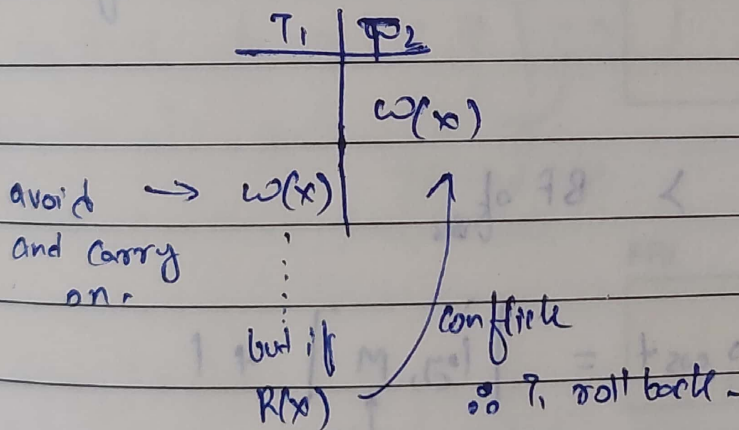 T₁ | T₂
W(x)
avoid → W(x)
and carry
on.
but if
conflick
R(x)
∴ T₁ roll back.